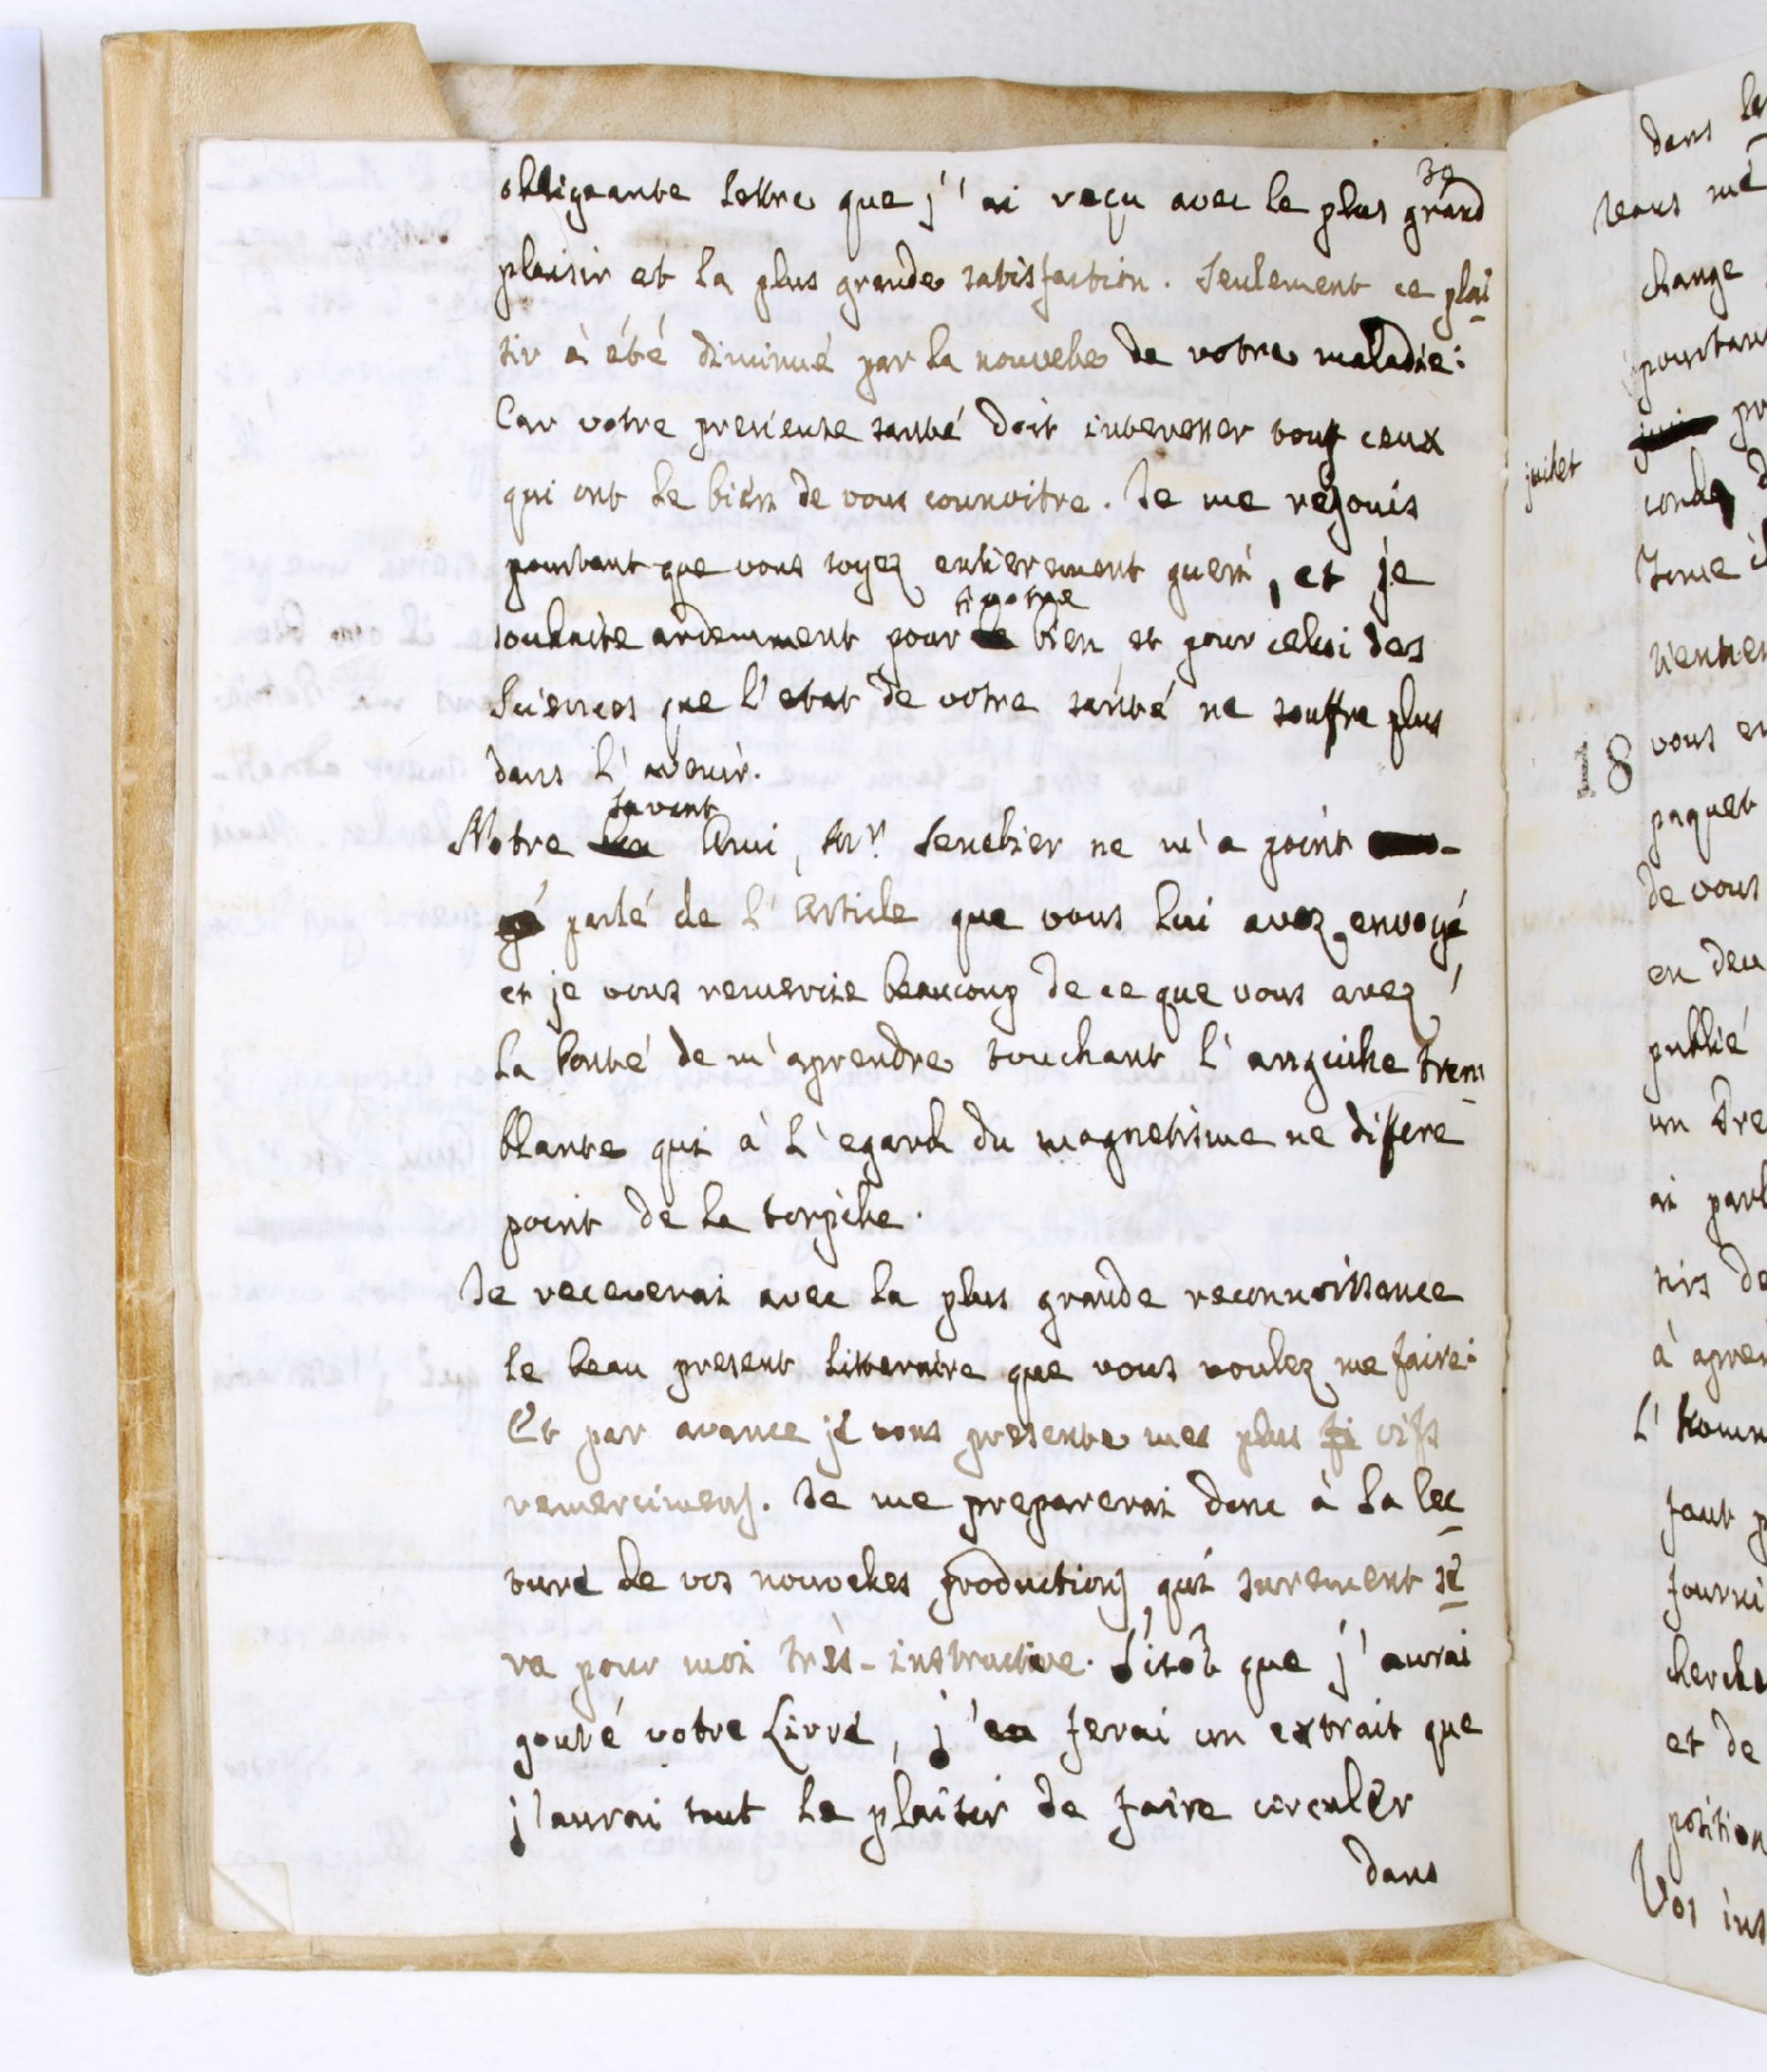 39
obligeante lettre que j'ai reçu avec le plus grand
plaisir et la plus grande satisfaction. Seulement ce plai
sir à été diminué par la nouvelle de votre maladie:
Car votre precieuse santé doit interesser tous ceux
qui ont le bien de vous connoitre. Je me rejouis
pourtant que vous soyez entierement gueri, et je
votre
souhaite ardemment pour le bien et pour celui des
Sciences que l'etat de votre santé ne souffre plus
dans l'avenir.
savant
Notre Ami, Mr. Senebier ne m'a point
parlé de l'Article que vous lui avez envoyé
et je vous remercie beaucoup de ce que vous avez
la bonté de m'aprendre touchant l'anguille trem
blante qui à l'egard du magnetisme ne differe
point de la torpille.
Je receverai avec la plus grande reconnoissance
le beau present litteraire que vous voulez me faire:
Et par avance je vous presente mes plus vifs
remercimens. Je me preparerai donc à la lec
ture de vos nouvelles productions qui surement se
ra pour moi très-instructive. Sitôt que j'aurai
gouté votre Livre, j'en ferai un extrait que
j'aurai tout le plaisir de faire circuler
dans
dans
change
pourtant
juillet
18
vous en
paquet
de vous
en deu
publié
un
ai parl
à
l'
faut
fourni
cherche
et de
position
Vos ins